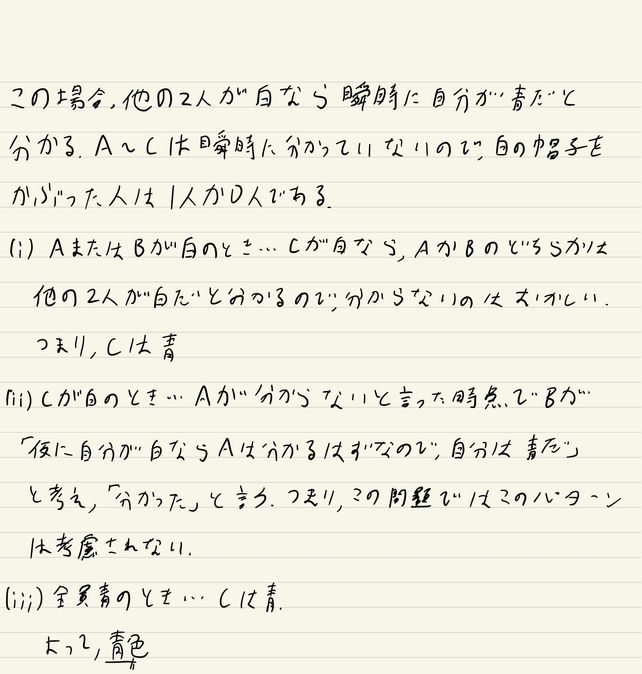 この場合,他の2人が白なら瞬時に自分が青だと
分かる.A～Cは瞬時に分かっていないので,白の帽子を
かぶった人は1人か0人である.
(i) AまたはBが白のとき…Cが白なら,AかBのどちらかは
他の2人が白だと分かるので,分からないのはおかしい.
つまり,Cは青
(ii) Cが白のとき…Aが分からないと言った時点でBが
「仮に自分が白ならAは分かるはずなので,自分は青だ」
と考え,「分かった」と言う.つまり,この問題ではこのパターン
は考慮されない.
(iii) 全員青のとき…Cは青.
よって,青色